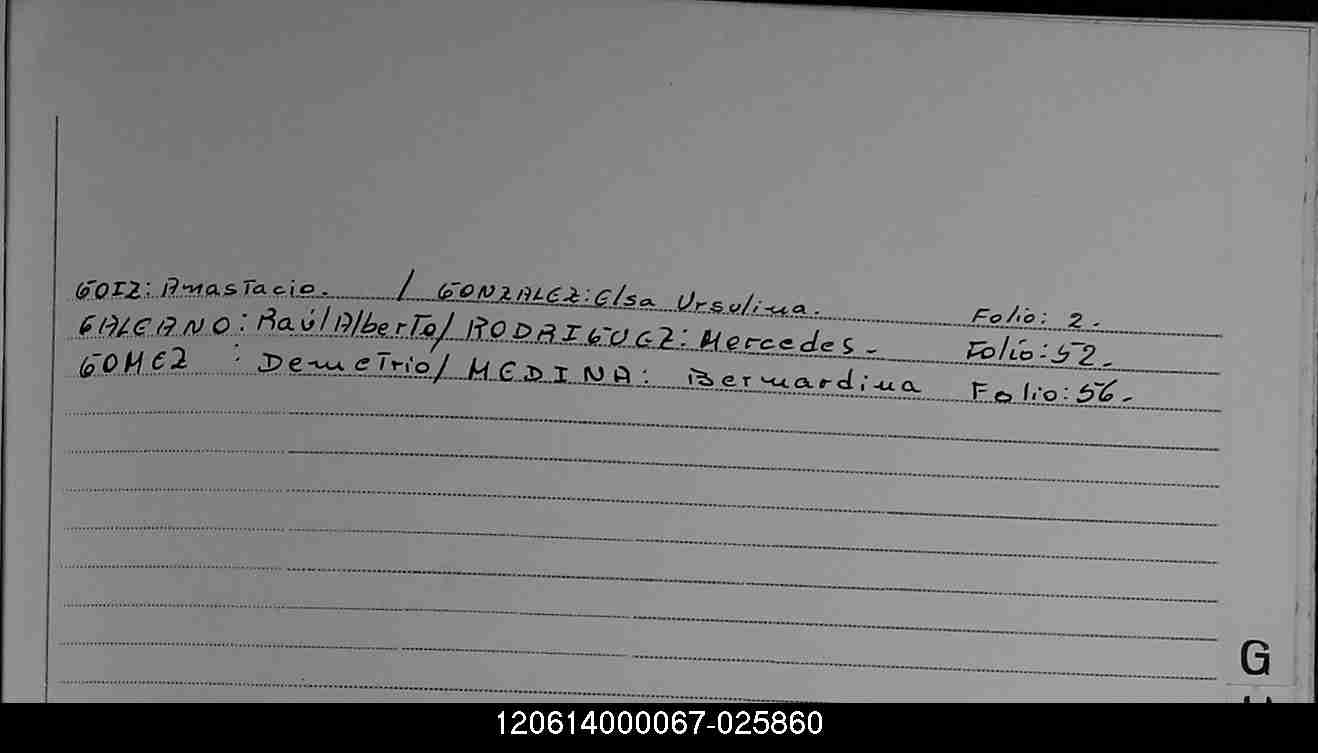 GOIZ: Anastacio. / GONZALEZ: Elsa Ursulina. Folio: 2.
GALEANO: Raúl Alberto/ RODRIGUEZ: Mercedes- Folio: 52.
GOMEZ : Demetrio/ MEDINA: Bernardina Folio: 56.
G
120614000067-025860